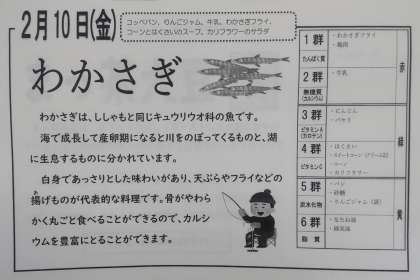 2月10日(金)
コッペパン、りんごジャム、牛乳、わかさぎフライ、
コーンとはくさいのスープ、カリフラワーのサラダ
わかさぎ
わかさぎは、ししゃもと同じキュウリウオ科の魚です。
海で成長して産卵期になると川をのぼってくるものと、湖
に生息するものに分かれています。
白身であっさりとした味わいがあり、天ぷらやフライなどの
揚げものが代表的な料理です。骨がやわら
かく丸ごと食べることができるので、カルシ
ウムを豊富にとることができます。
1群
たんぱく質
・わかさぎフライ
・鶏肉
2群
無機質
(カルシウム)
・牛乳
赤
3群
ビタミンA
(カロテン)
・にんじん
・パセリ
4群
ビタミンC
・はくさい
・コーン
・カリフラワー
緑
5群
炭水化物
・パン
・砂糖
・りんごジャム
6群
脂質
黄